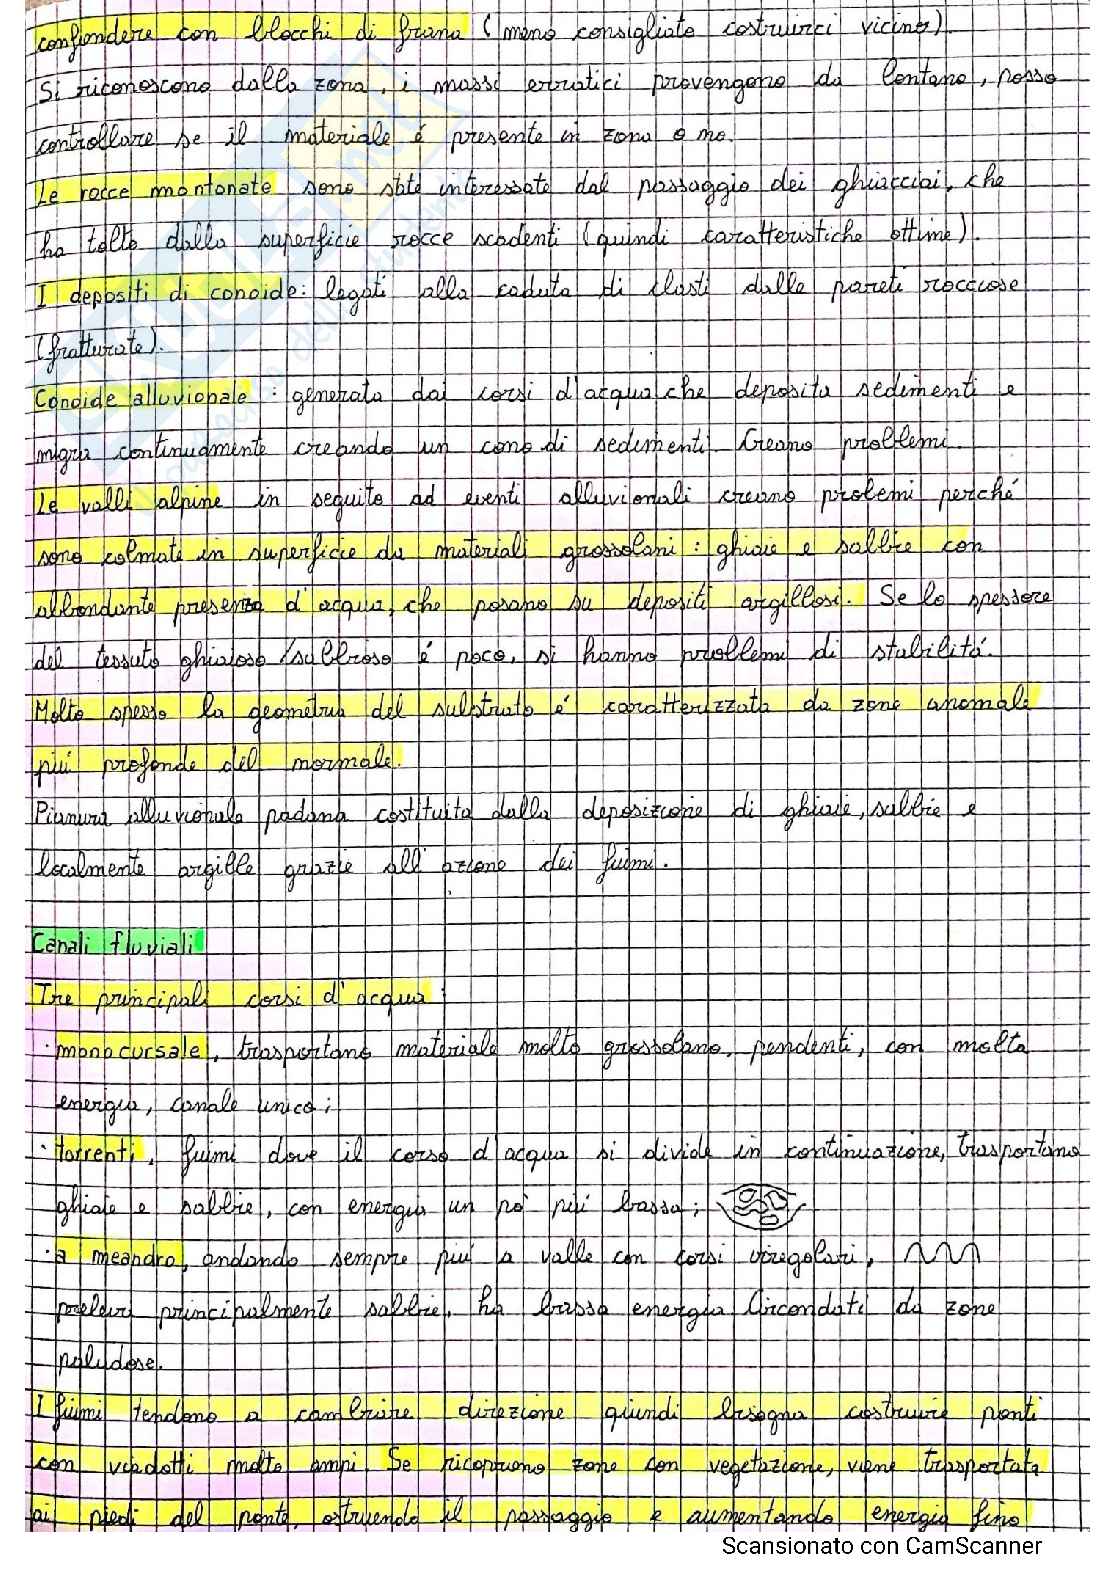 confondere con blocchi di frana (meno consigliato costruirci vicino).
Si riconoscono dalla zona, i massi erratici provengono da lontano, posso
controllare se il materiale é presente in zona o no.
Le rocce montonate sono state interessate dal passaggio dei ghiacciai, che
ha tolto dalla superficie rocce scadenti (quindi caratteristiche ottime).
I depositi di conoide: legati alla caduta di clasti dalle pareti rocciose
(fratturate).
Conoide alluvionale: generata dai corsi d'acqua che deposita sedimenti e
migra continuamente creando un cono di sedimenti. Creano problemi.
Le valli alpine in seguito ad eventi alluvionali creano prolemi perché
sono colmate in superficie da materiali grossolani: ghiaie e sabbie con
abbondante presenza d'acqua, che posano su depositi argillosi. Se lo spessore
del tessuto ghiaioso/sabbioso é poco, si hanno problemi di stabilitá.
Molto spesso la geometria del substrato é caratterizzata da zone anomale
piú profonde del normale.
Pianura alluvionale padana costituita dalla deposizione di ghiaie, sabbie e
localmente argille grazie all'azione dei fiumi.
Canali fluviali
Tre principali corsi d'acqua:
· monocursale, trasportano materiale molto grossolano, pendenti, con molta
energia, canale unico;
· torrenti, fiumi dove il corso d'acqua si divide in continuazione, trasportano
ghiaie e sabbie, con energia un pó piú bassa;
· a meandro, andando sempre piú a valle con corsi irregolari,
prelevi principalmente sabbie, ha bassa energia. Circondati da zone
paludose.
I fiumi tendono a cambiare direzione quindi bisogna costruire ponti
con viadotti molto ampi. Se ricoprono zone con vegetazione, viene trasportata
ai piedi del ponte, ostruendo il passaggio e aumentando energia fino
Scansionato con CamScanner